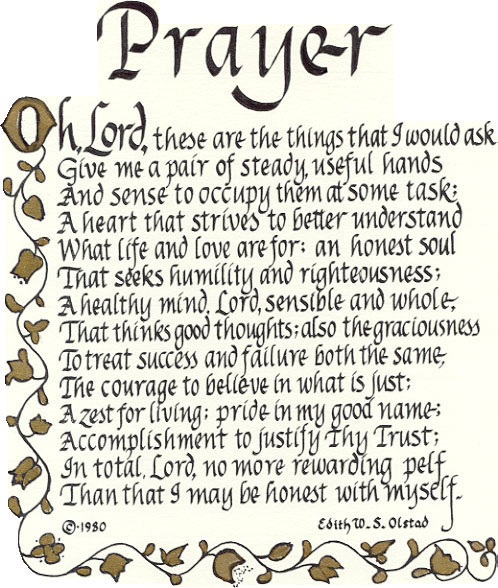 Prayer
Oh, Lord, these are the things that I would ask
Give me a pair of steady, useful hands
And sense to occupy them at some task;
A heart that strives to better understand
What life and love are for: an honest soul
That seeks humility and righteousness;
A healthy mind, Lord, sensible and whole,
That thinks good thoughts; also the graciousness
To treat success and failure both the same,
The courage to believe in what is just;
A zest for living; pride in my good name;
Accomplishment to justify Thy Trust;
In total, Lord, no more rewarding pelf
Than that I may be honest with myself.
©·1980 Edith W. S. Olstad